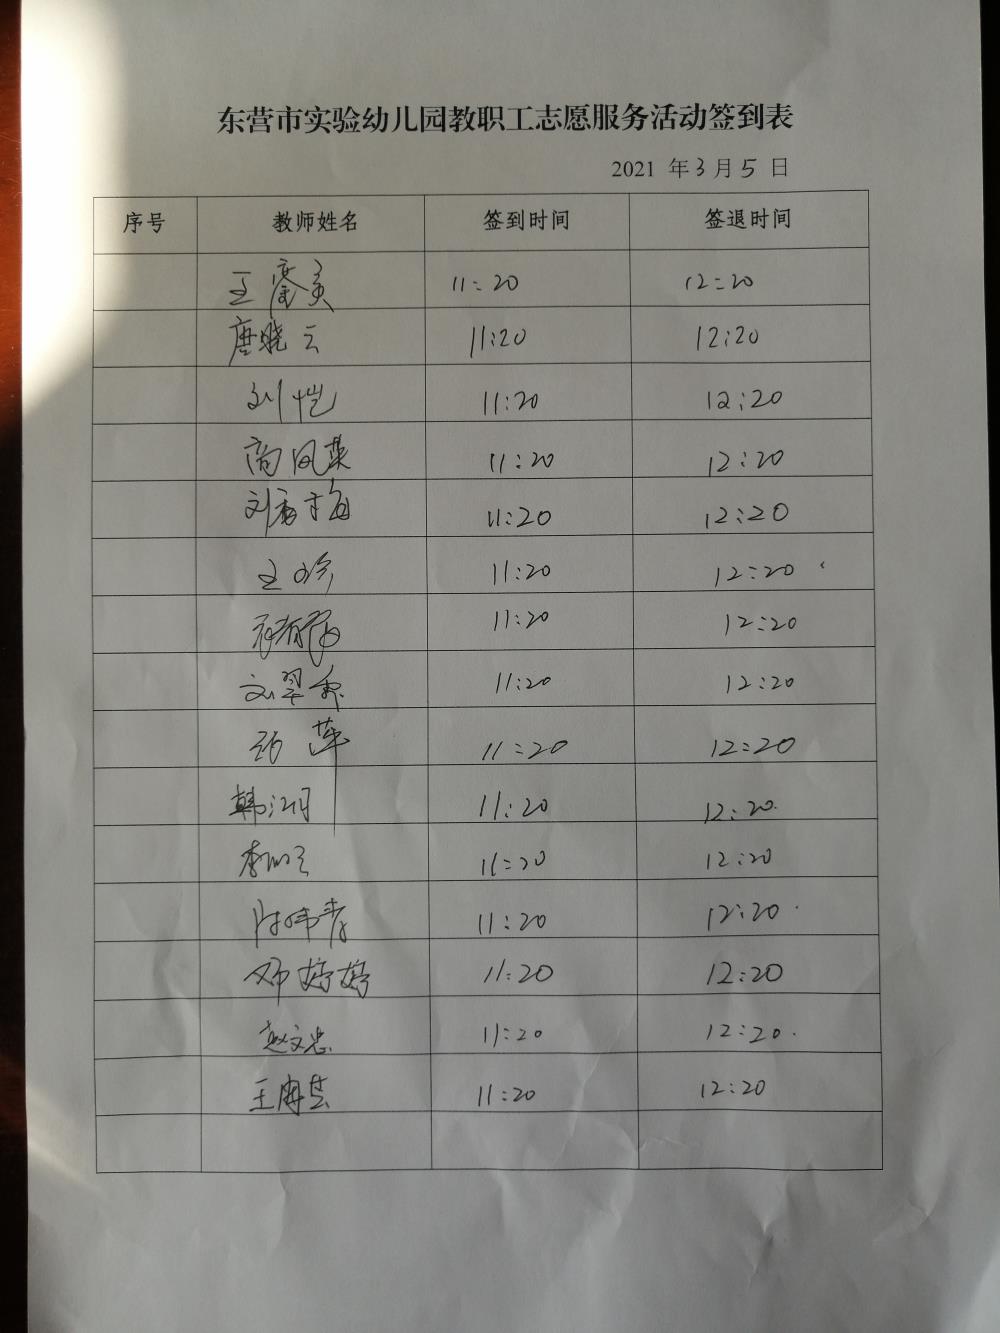 东营市实验幼儿园教职工志愿服务活动签到表
2021 年 3 月 5 日
序号 教师姓名 签到时间 签退时间
王 11:20 12:20
唐晓云 11:20 12:20
刘恺 11:20 12:20
高凤英 11:20 12:20
刘秀梅 11:20 12:20
王珍 11:20 12:20
11:20 12:20
刘翠香 11:20 12:20
张萍 11:20 12:20
韩润 11:20 12:20
李 11:20 12:20
陈伟青 11:20 12:20
邓婷婷 11:20 12:20
赵文忠 11:20 12:20
王海芸 11:20 12:20